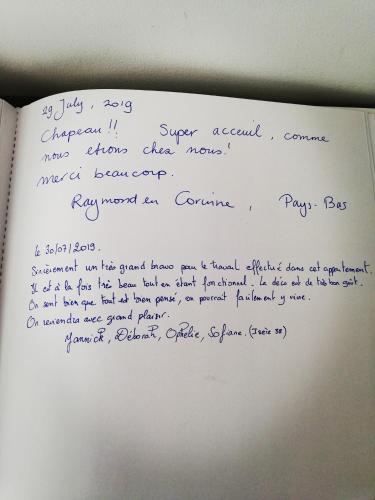 29 July, 2019
Chapeau!! Super acceuil, comme
nous etions chez nous!
merci beaucoup.
Raymond en Corinne, Pays-Bas
le 30/07/2019.
Sincèrement un très grand bravo pour le travail effectué dans cet appartement.
Il est à la fois très beau tout en étant fonctionnel. La déco est de très bon goût.
On sent bien que tout est bien pensé, on pourrait facilement y vivre.
On reviendra avec grand plaisir.
Yannick, Déborah, Ophélie, Sofiane. (Isère 38)